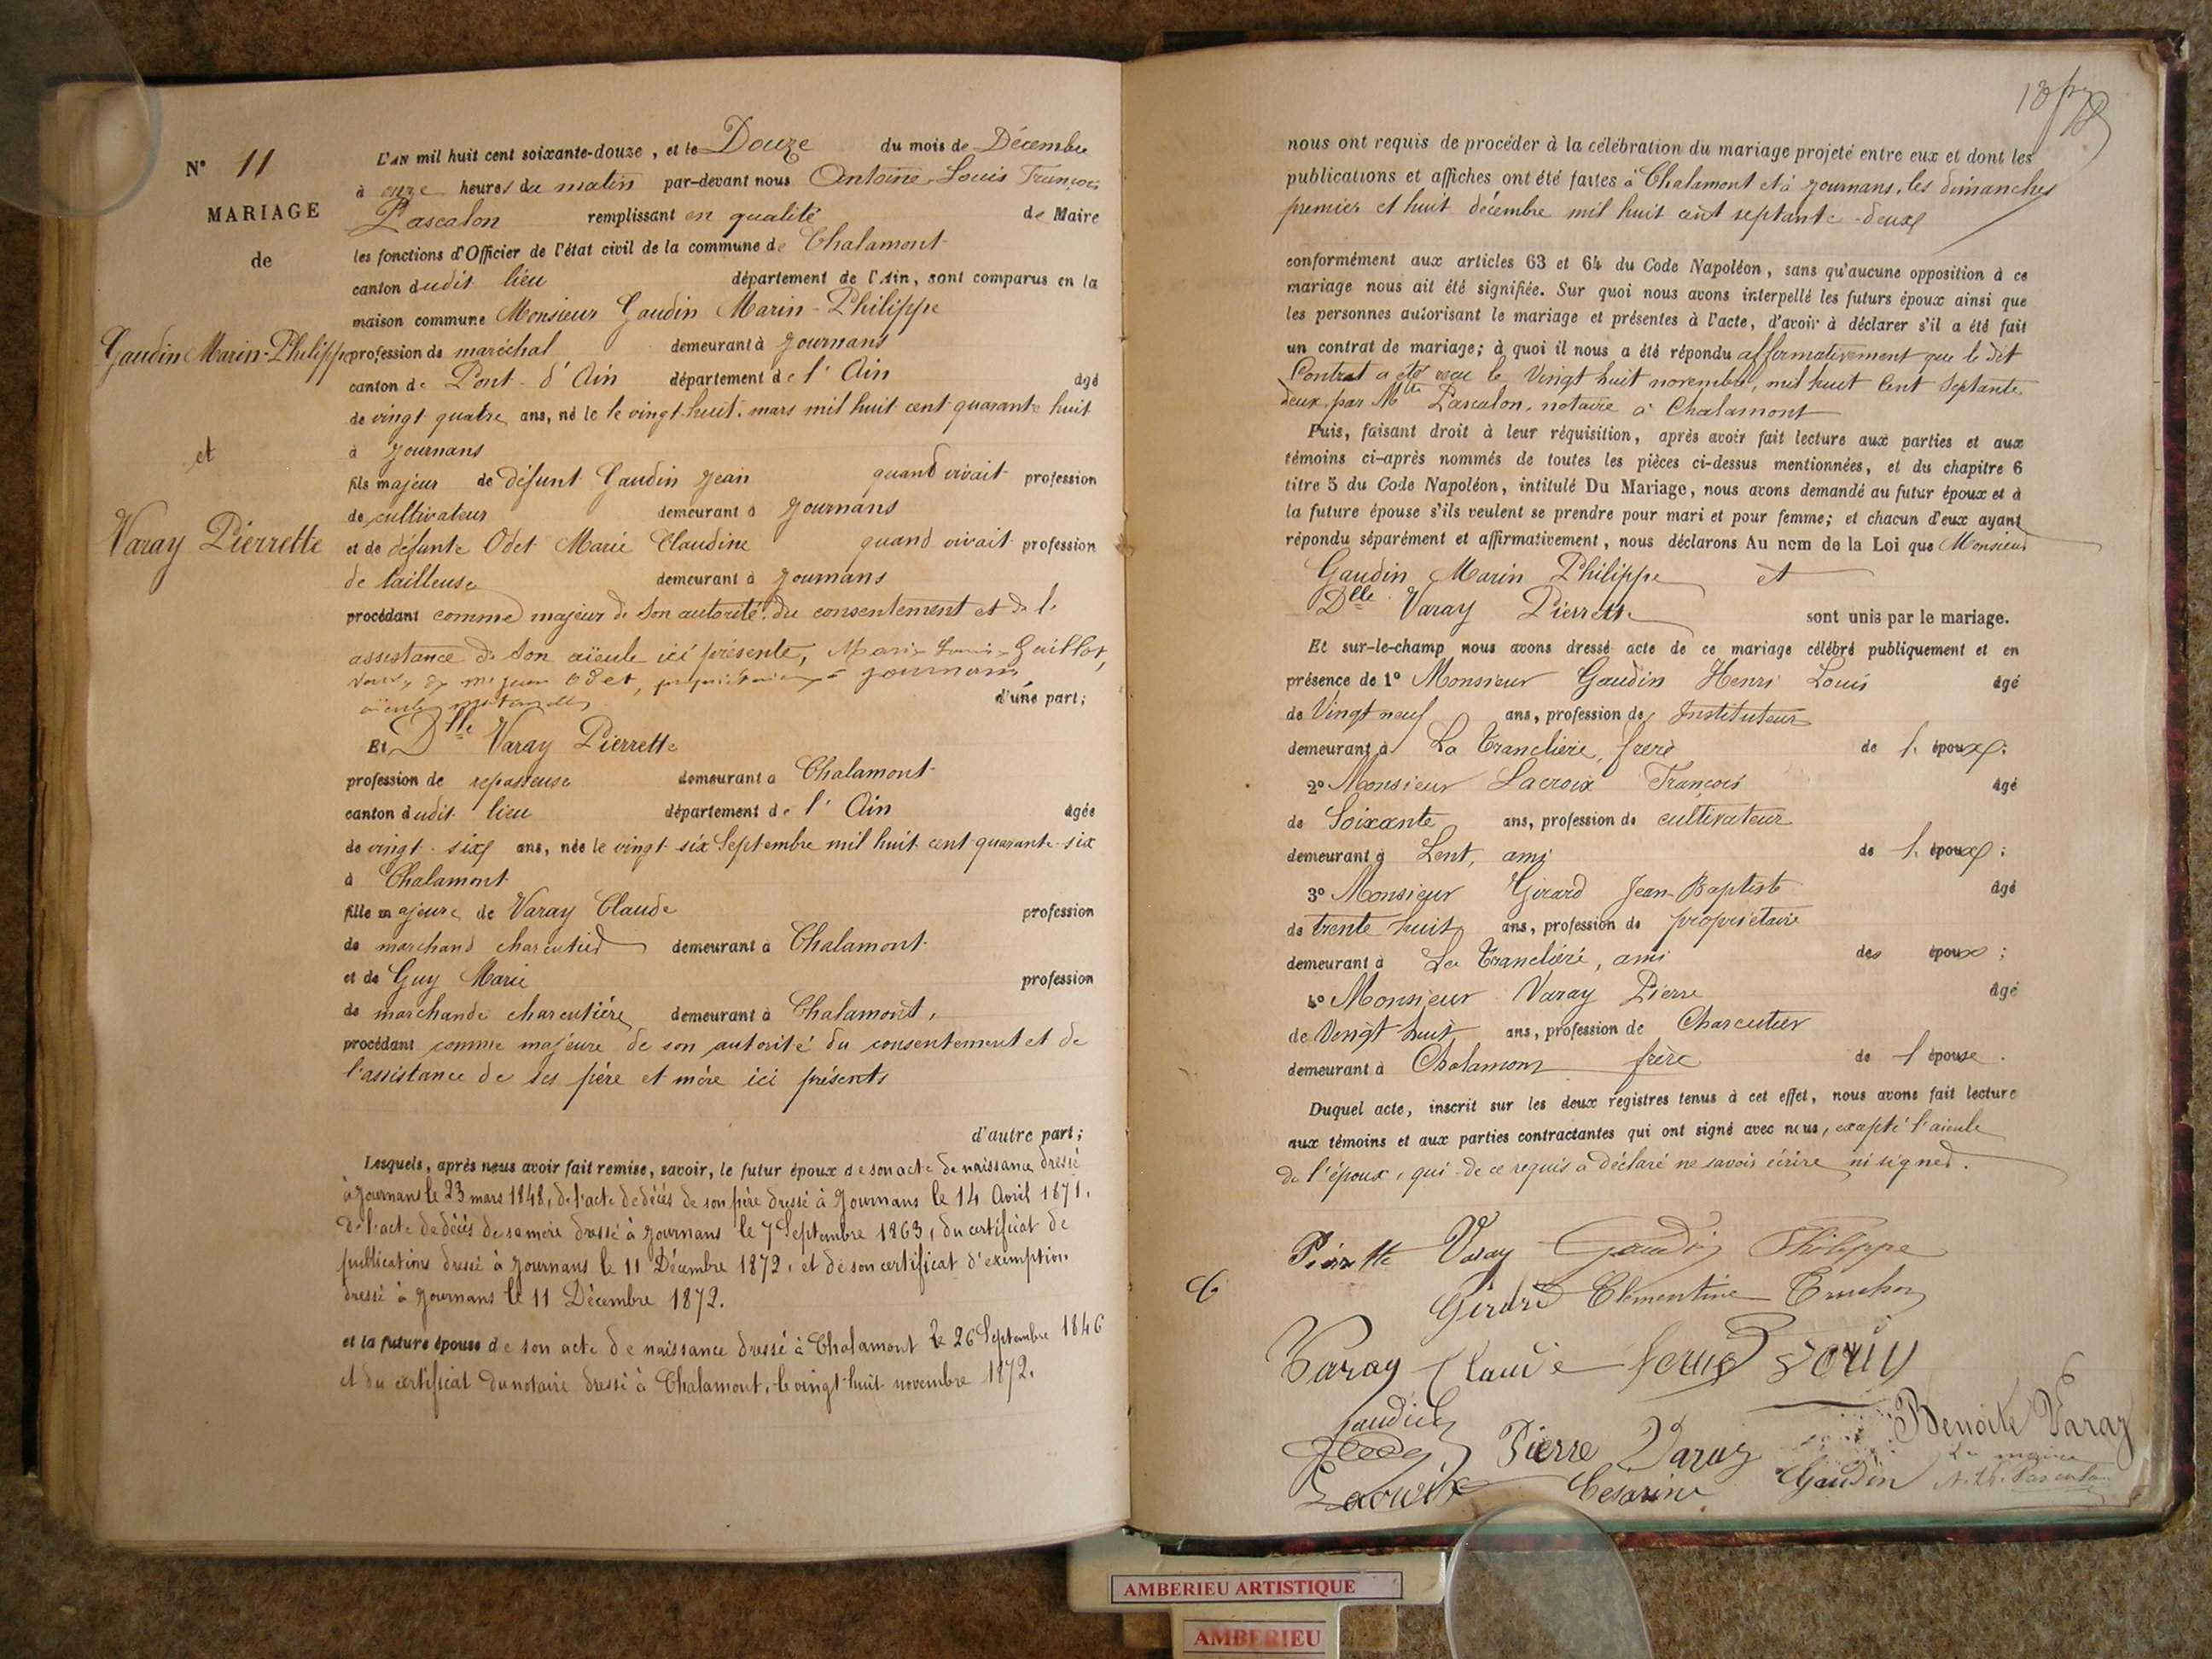 N° 11
MARIAGE
de
Gaudin Marin-Philippe
et
Varay Pierrette
L'AN mil huit cent soixante-douze, et le Douze du mois de Décembre
à onze heures du matin par-devant nous Antoine Louis François
Pascalon remplissant en qualité de Maire
les fonctions d'Officier de l'état civil de la commune de Chalamont
canton dudit lieu département de l'Ain, sont comparus en la
maison commune Monsieur Gaudin Marin-Philippe
profession de maréchal demeurant à Journans
canton de Pont-d'Ain département de l'Ain âgé
de vingt quatre ans, né le le vingt-huit mars mil huit cent quarante huit
à Journans
fils majeur de défunt Gaudin Jean quand vivait profession
de cultivateur demeurant à Journans
et de défunte Odet Marie Claudine quand vivait profession
de tailleuse demeurant à Journans
procédant comme majeur de son autorité du consentement et de l'
assistance de son aïeule ici présente, Marie Guillot,
Odet, à Journans
d'une part;
Et Dlle Varay Pierrette
profession de repasseuse demeurant à Chalamont
canton dudit lieu département de l'Ain âgée
de vingt-six ans, née le vingt-six Septembre mil huit cent quarante-six
à Chalamont
fille majeure de Varay Claude profession
de marchand charcutier demeurant à Chalamont
et de Guy Marie profession
de marchande charcutière demeurant à Chalamont,
procédant comme majeure de son autorité du consentement et de
l'assistance de ses père et mère ici présents
d'autre part;
Lesquels, après nous avoir fait remise, savoir, le futur époux de son acte de naissance dressé
à Journans le 23 mars 1848, de l'acte de décès de son père dressé à Journans le 14 Avril 1871,
de l'acte de décès de sa mère dressé à Journans le 7 Septembre 1863, du certificat de
publications dressé à Journans le 11 Décembre 1872, et de son certificat d'exemption
dressé à Journans le 11 Décembre 1872.
et la future épouse de son acte de naissance dressé à Chalamont le 26 Septembre 1846
et du certificat du notaire dressé à Chalamont, le vingt-huit novembre 1872.
nous ont requis de procéder à la célébration du mariage projeté entre eux et dont les
publications et affiches ont été faites à Chalamont et à Journans, les dimanches
premier et huit décembre mil huit cent septante-deux
conformément aux articles 63 et 64 du Code Napoléon, sans qu'aucune opposition à ce
mariage nous ait été signifiée. Sur quoi nous avons interpellé les futurs époux ainsi que
les personnes autorisant le mariage et présentes à l'acte, d'avoir à déclarer s'il a été fait
un contrat de mariage; à quoi il nous a été répondu affirmativement que le dit
Contrat a été reçu le Vingt huit novembre, mil huit Cent Septante
deux par Mtre Pascalon, notaire à Chalamont
Puis, faisant droit à leur réquisition, après avoir fait lecture aux parties et aux
témoins ci-après nommés de toutes les pièces ci-dessus mentionnées, et du chapitre 6
titre 5 du Code Napoléon, intitulé Du Mariage, nous avons demandé au futur époux et à
la future épouse s'ils veulent se prendre pour mari et pour femme; et chacun d'eux ayant
répondu séparément et affirmativement, nous déclarons Au nom de la Loi que Monsieur
Gaudin Marin Philippe et
Dlle Varay Pierrette sont unis par le mariage.
Et sur-le-champ nous avons dressé acte de ce mariage célébré publiquement et en
présence de 1° Monsieur Gaudin Henri Louis âgé
de Vingt neuf ans, profession de Instituteur
demeurant à La Tranclière, frère de l'époux;
2° Monsieur Lacroix François âgé
de Soixante ans, profession de cultivateur
demeurant à Lent, ami de l'époux;
3° Monsieur Girard Jean-Baptiste âgé
de trente huit ans, profession de propriétaire
demeurant à La Tranclière, ami des époux;
4° Monsieur Varay Pierre âgé
de Vingt huit ans, profession de Charcutier
demeurant à Chalamont frère de l'épouse.
Duquel acte, inscrit sur les deux registres tenus à cet effet, nous avons fait lecture
aux témoins et aux parties contractantes qui ont signé avec nous, excepté l'aïeule
de l'époux, qui de ce requis a déclaré ne savoir écrire ni signer.
Pierrette Varay Gaudin Philippe
Clémentine Truchon
Varay Claude
Gaudin
Pierre Varay Benoîte Varay
Lacroix Césarine Gaudin
Le maire
AMBERIEU ARTISTIQUE
AMBERIEU